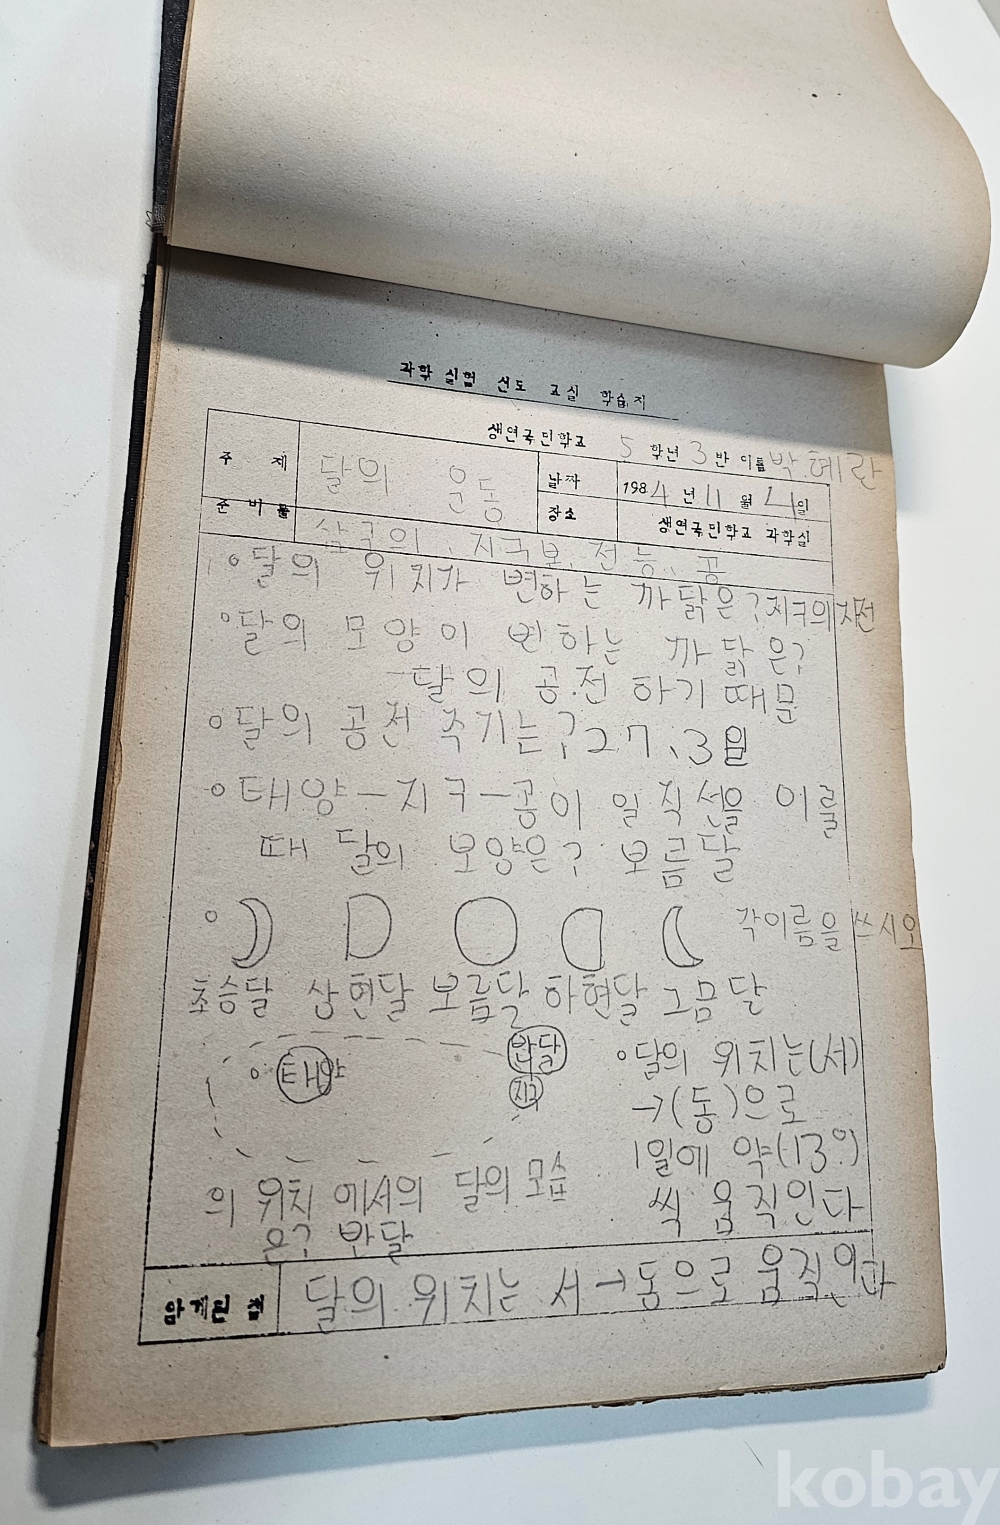 과학 실험 선도 교실 학습지
생연국민학교 5 학년 3 반 이름 박혜란
주 제 달의 운동 날짜 1984 년 11 월 4일
장소 생연국민학교 과학실
준 비 물 삼구의, 지구본, 전등, 공
○달의 위치가 변하는 까닭은? 지구의 자전
○달의 모양이 변하는 까닭은?
달의 공전 하기 때문
○달의 공전 주기는? 27.3일
○태양-지구-공이 일직선을 이룰
때 달의 모양은? 보름달
○ 각이름을 쓰시오
초승달 상현달 보름달 하현달 그믐달
○태양 반달
지구
의 위치 에서의 달의 모습
은? 반달
○달의 위치는(서)
→(동)으로
1일에 약(13°)
씩 움직인다
알게된 점 달의 위치는 서→동으로 움직인다
kobay